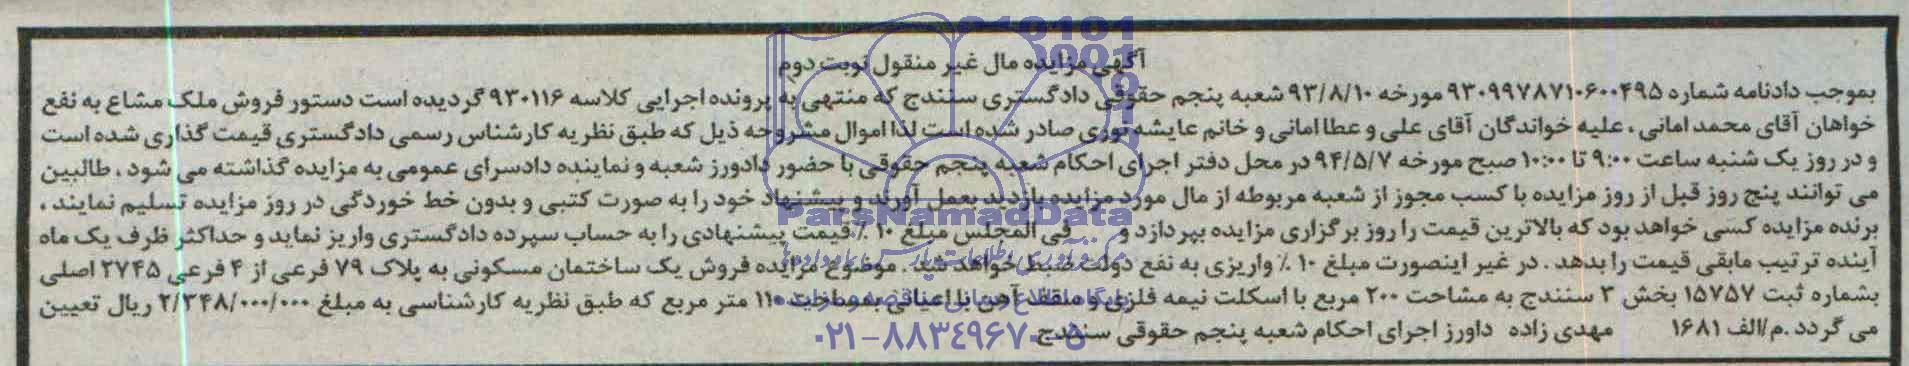 آگهی مزایده مال غیر منقول نوبت دوم
بموجب دادنامه شماره ۹۳۰۹۹۷۸۷۱۰۶۰۰۴۹۵ مورخه ۹۳/۸/۱۰ شعبه پنجم حقوقی دادگستری سنندج که منتهی به پرونده اجرایی کلاسه ۹۳۰۱۱۶ گردیده است دستور فروش ملک مشاع به نفع
خواهان آقای محمد امانی ، علیه خواندگان آقای علی و عطا امانی و خانم عایشه نوری صادر شده است لذا اموال مشروحه ذیل که طبق نظریه کارشناس رسمی دادگستری قیمت گذاری شده است
و در روز یک شنبه ساعت ۹:۰۰ تا ۱۰:۰۰ صبح مورخه ۹۴/۵/۷ در محل دفتر اجرای احکام شعبه پنجم حقوقی با حضور دادورز شعبه و نماینده دادسرای عمومی به مزایده گذاشته می شود ، طالبین
می توانند پنج روز قبل از روز مزایده با کسب مجوز از شعبه مربوطه از مال مورد مزایده بازدید بعمل آورند و پیشنهاد خود را به صورت کتبی و بدون خط خوردگی در روز مزایده تسلیم نمایند ،
برنده مزایده کسی خواهد بود که بالاترین قیمت را روز برگزاری مزایده بپردازد و فی المجلس مبلغ ۱۰ ٪ قیمت پیشنهادی را به حساب سپرده دادگستری واریز نماید و حداکثر ظرف یک ماه
آینده ترتیب مابقی قیمت را بدهد . در غیر اینصورت مبلغ ۱۰ ٪ واریزی به نفع دولت ضبط خواهد شد . موضوع مزایده فروش یک ساختمان مسکونی به پلاک ۷۹ فرعی از ۴ فرعی ۲۷۴۵ اصلی
بشماره ثبت ۱۵۷۵۷ بخش ۳ سنندج به مشاحت ۲۰۰ مربع با اسکلت نیمه فلزی و سقف آهن با اعیانی بمساحت ۱۱۰ متر مربع که طبق نظریه کارشناسی به مبلغ ۲/۳۴۸/۰۰۰/۰۰۰ ریال تعیین
می گردد .م/الف ۱۶۸۱ مهدی زاده داورز اجرای احکام شعبه پنجم حقوقی سنندج
ParsNamadData
۰۲۱-۸۸۳۴۹۶۷۰-۵